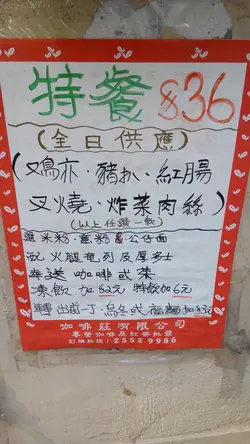 特餐 $36
(全日供應)
豬扒、紅腸
叉燒、炸菜肉絲
(以上任選一款)
選米粉、意粉&公仔面
火腿奄列及厚多士
送咖啡或茶
凍飲加$2元 特飲加6元
轉出前一丁、烏冬或
咖啡莊有限公司
專營咖啡及紅茶批發
訂購熱線：2552 9986